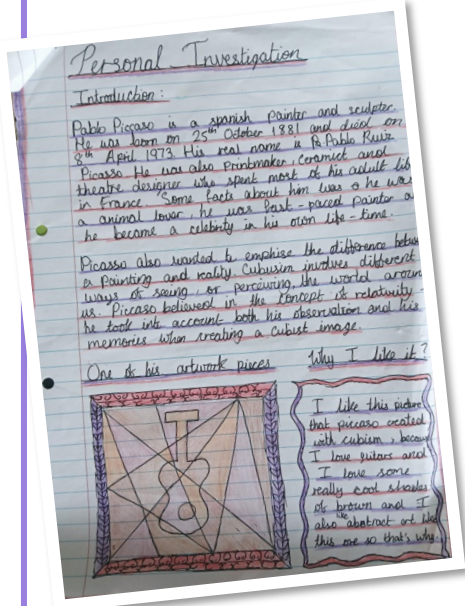 Personal Investigation
Introduction:
Pablo Piccaso is a spanish Painter and sculpter.
He was born on 25th October 1881 and died on
8th April 1973. His real name is Pablo Ruiz
Picasso. He was also Printmaker, Ceramict and
theatre designer who spent most of his adult
in France. Some facts about him was he was
a animal lover, he was fast-paced painter
he became a celebrity in his own life-time.
Picasso also wanted to emphise the difference
a painting and reality. Cubusim involves different
ways of seeing, or perceiving, the world
us. Picaso believed in the concept of relativity -
he took into account both his observation and his
memories when creating a cubist image.
One of his artwork pieces
Why I like it?
I like this picture
that piccaso created
with cubism,
I love guitars and
I love some
really cool shades
of brown and I
also like abstract art like
this one so that's why.